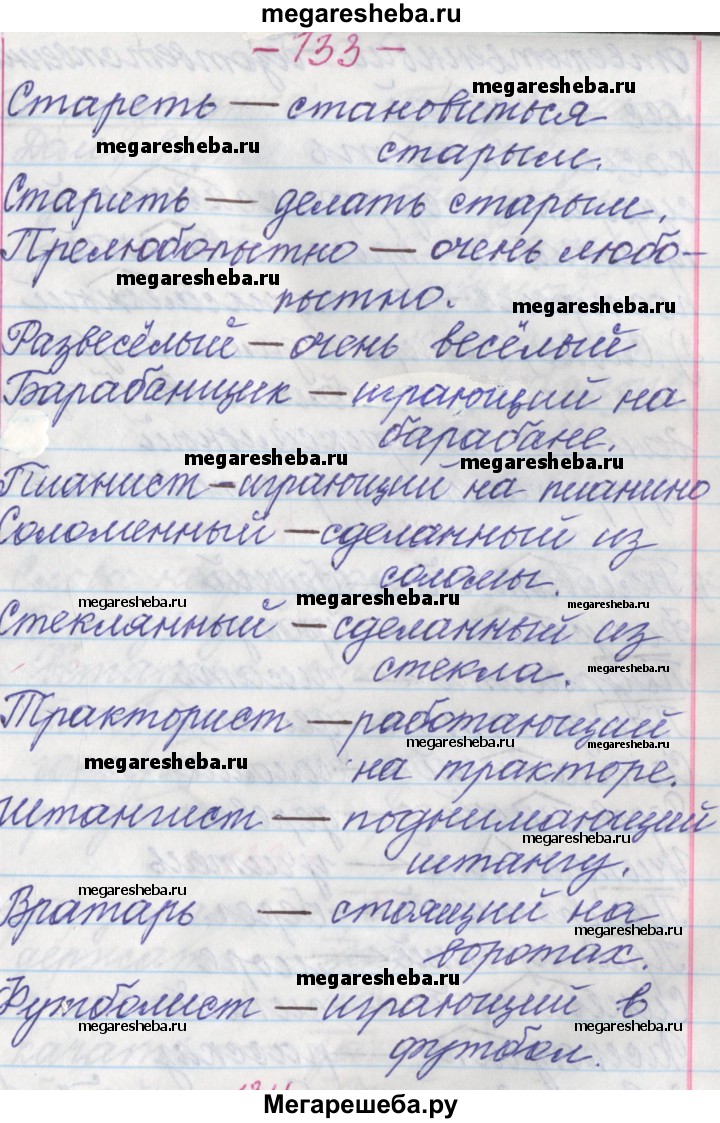 megaresheba.ru
- 133 -
megaresheba.ru
Стареть — становиться
megaresheba.ru
старым.
Старить — делать старым.
Прелюбопытно — очень любо-
megaresheba.ru
пытно.
megaresheba.ru
Развесёлый — очень весёлый
Барабанщик — играющий на
барабане.
megaresheba.ru
megaresheba.ru
Пианист - играющий на пианино
Соломенный — сделанный из
соломы.
megaresheba.ru
megaresheba.ru
megaresheba.ru
Стеклянный — сделанный из
стекла.
megaresheba.ru
Тракторист — работающий
megaresheba.ru
megaresheba.ru
megaresheba.ru
на тракторе.
Штангист — поднимающий
megaresheba.ru
штангу.
megaresheba.ru
Вратарь — стоящий на
megaresheba.ru
воротах.
megaresheba.ru
Футболист — играющий в
megaresheba.ru
megaresheba.ru
футбол.
Мегарешеба.ру